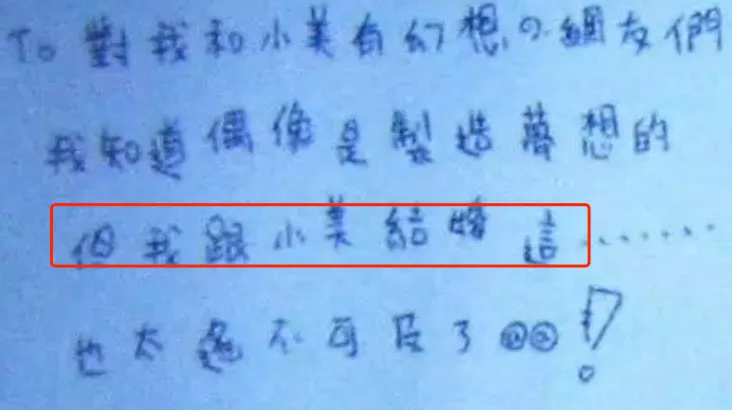 To 對我和小美有幻想の網友們
我知道偶像是製造夢想的
但我跟小美結婚這.......
也太遙不可及了@@!